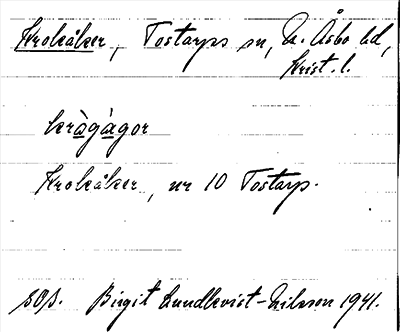 Krokåker, Tostarps sn, N. Åsbo hd,
Krist. l.
kràgågor
Krokåker, nr 10 Tostarp.
sOs. Birgit Lundkvist-Nilsson 1941.